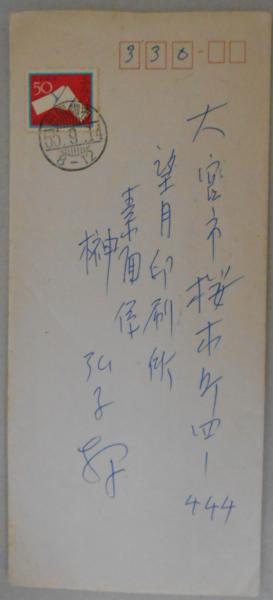 50
55.9.14
8-12
330-
大宮市桜木町四ー
444
望月印刷所
素面保
榊弘子様